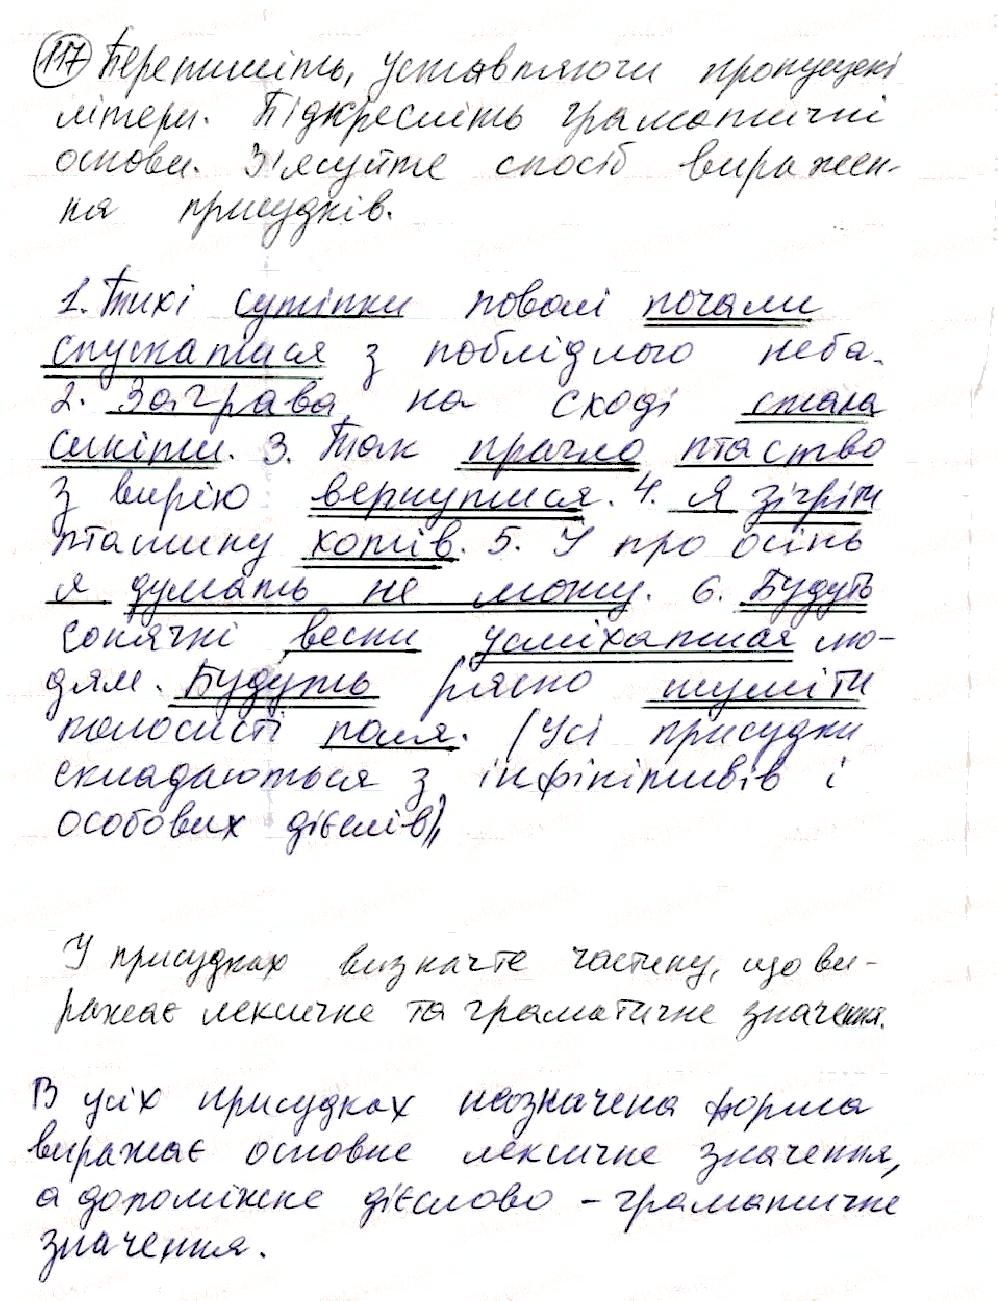 117 Перепишіть, уставляючи пропущені
літери. Підкресліть граматичні
основи. З'ясуйте спосіб виражен-
ня присудків.
1. Тихі сутінки поволі почали
спускатися з поблідлого неба.
2. Заграва на сході стала
синіти. 3. Так прагло птаство
з вирію вернутися. 4. Я зігріти
пташину хотів. 5. У про осінь
я думать не можу. 6. Будуть
сонячні весни усміхатися лю-
дям. Будуть рясно шуміти
колосисті поля. (Усі присудки
складаються з інфінітивів і
особових дієслів),
У присудках визначте частину, що ви-
ражає лексичне та граматичне значення.
В усіх присудках неозначена форма
виражає основне лексичне значення,
а допоміжне дієслово - граматичне
значення.